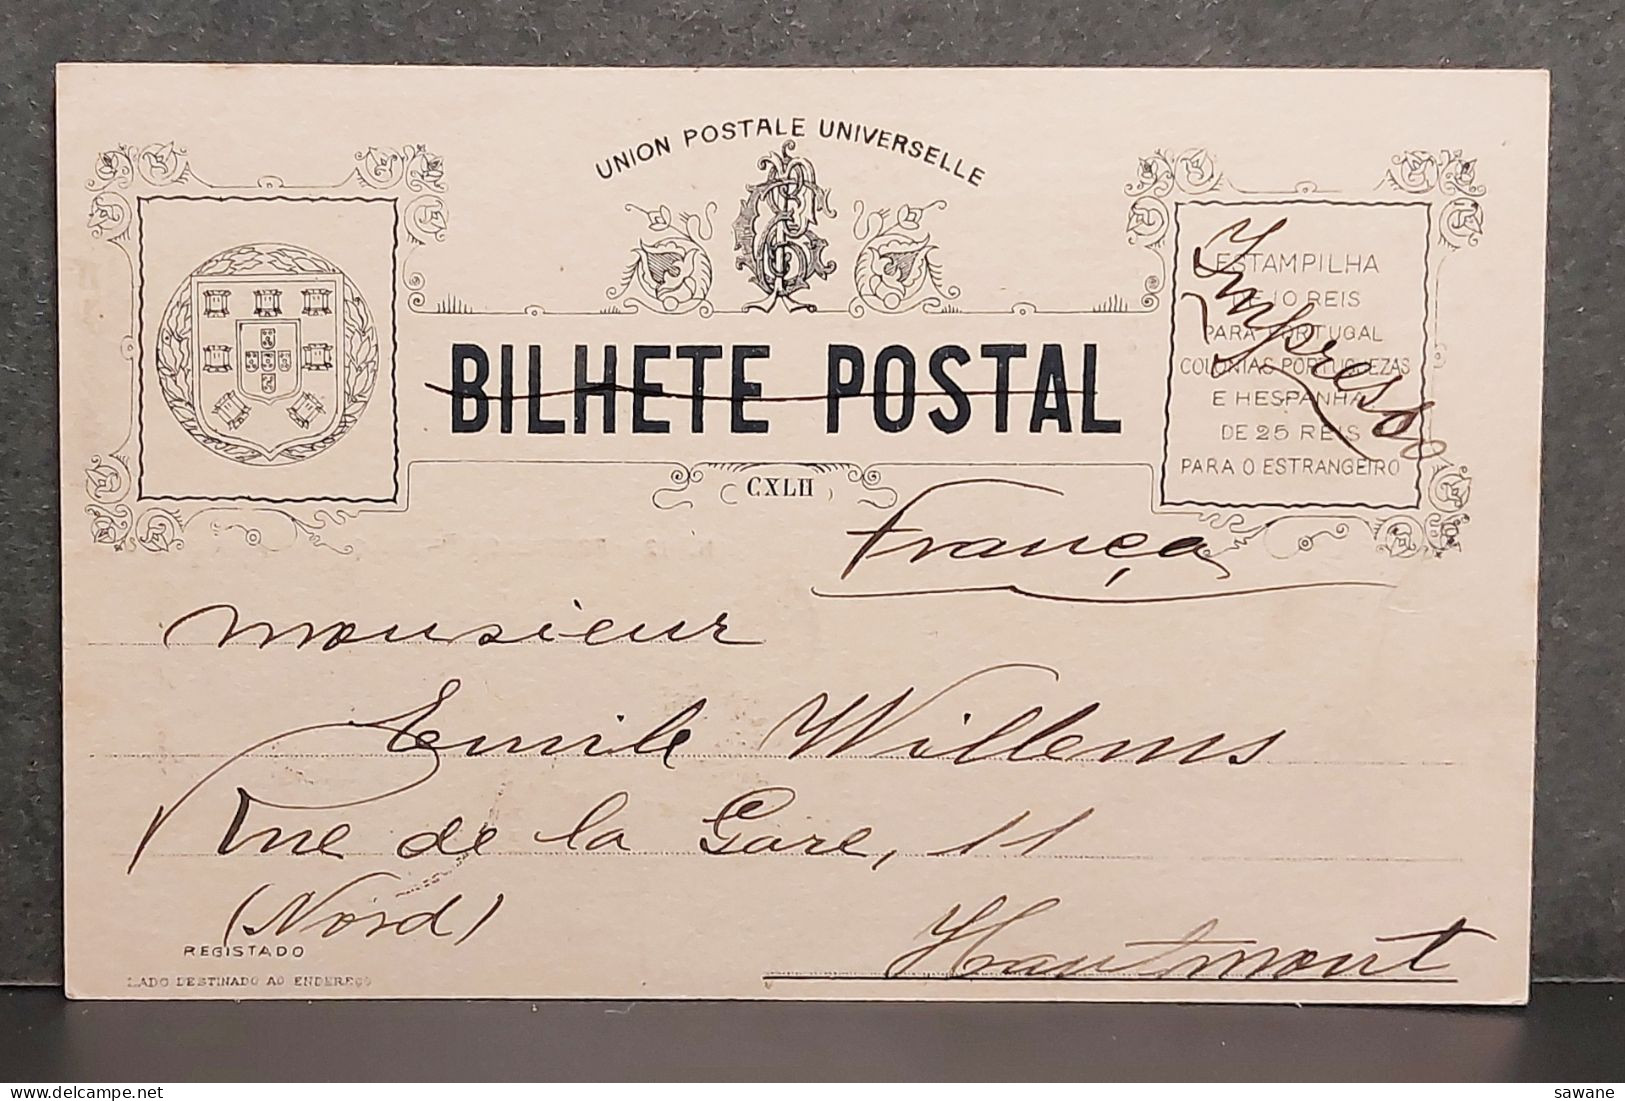 UNION POSTALE UNIVERSELLE
BILHETE POSTAL
CXLII
ESTAMPILHA
DE 10 REIS
PARA PORTUGAL
COLONIAS PORTUGUEZAS
E HESPANHA
DE 25 REIS
PARA O ESTRANGEIRO
Impresso
França
Monsieur
Emile Willems
Rue de la Gare, 11
(Nord)
Hautmont
REGISTADO
LADO DESTINADO AO ENDEREÇO
sawane